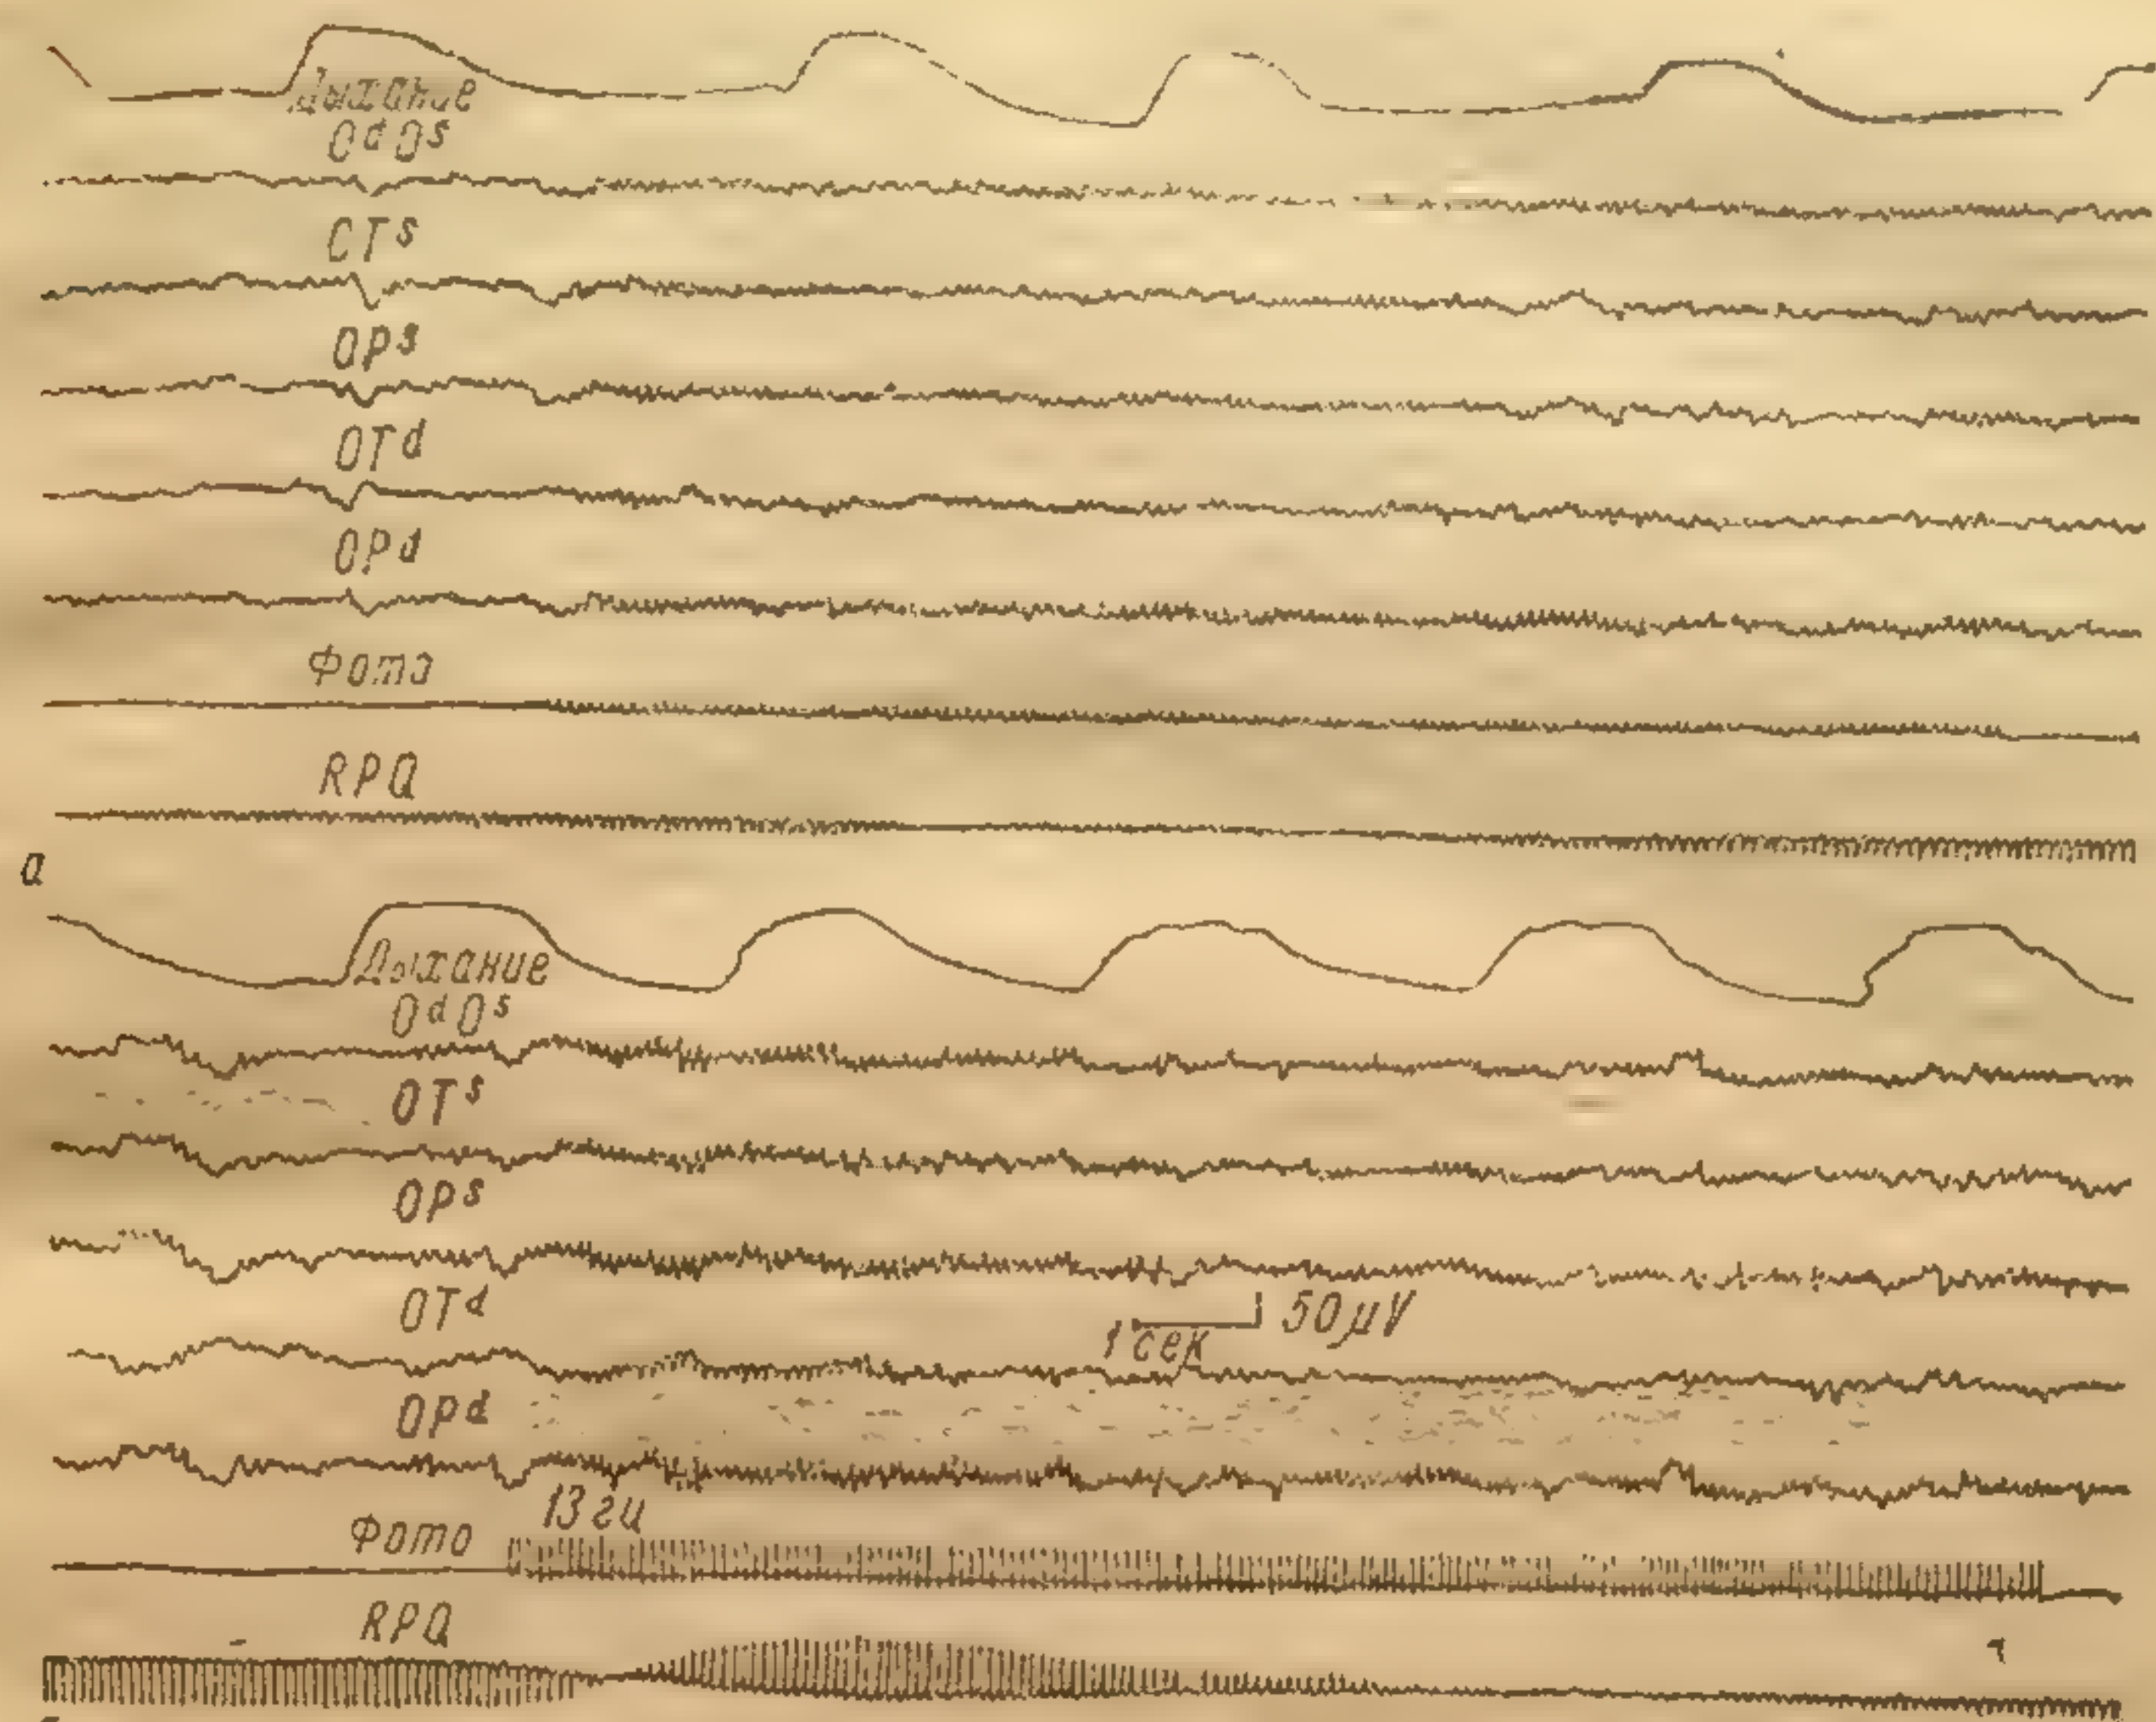 Дыхание
OdOs
CTs
OPs
OTd
OPd
Фото
RPQ
а
Дыхание
OdOs
OTs
OPs
OTd
1 сек 50 μV
OPd
13 гц
Фото
RPQ